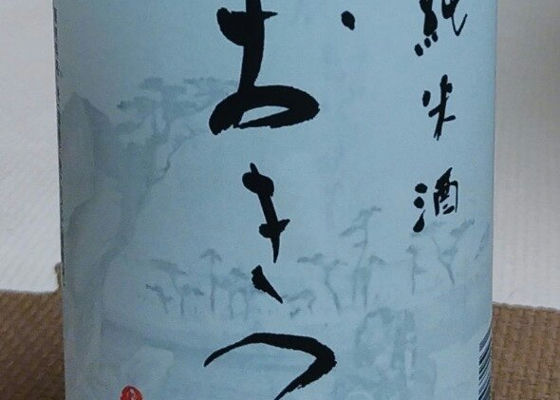 純米酒
おきつ